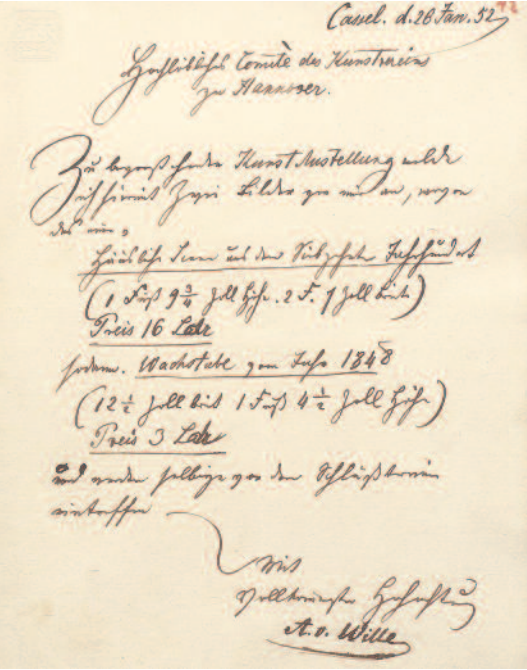 Cassel. d. 28 Jan. 52
Hochlöbliches Comitè des Kunstvereins
zu Hannover.
Zu bevorstehender Kunst Austellung melde
ich hiermit Zwei Bilder von mir an, wovon
das eine
Häusliche Scene aus dem Siebzehnten Jahrhundert
(1 Fuß 9 3/4 Zoll Höhe. 2 F. 1 Zoll breit)
Preis 16 Ldr
sodann. Wachstube vom Jahre 1848
(12 1/2 Zoll breit 1 Fuß 4 1/2 Zoll Höhe)
Preis 3 Ldr
und werden selbige vor dem Schlußtermin
eintreffen
Mit
Hochachtung
A. v. Wille